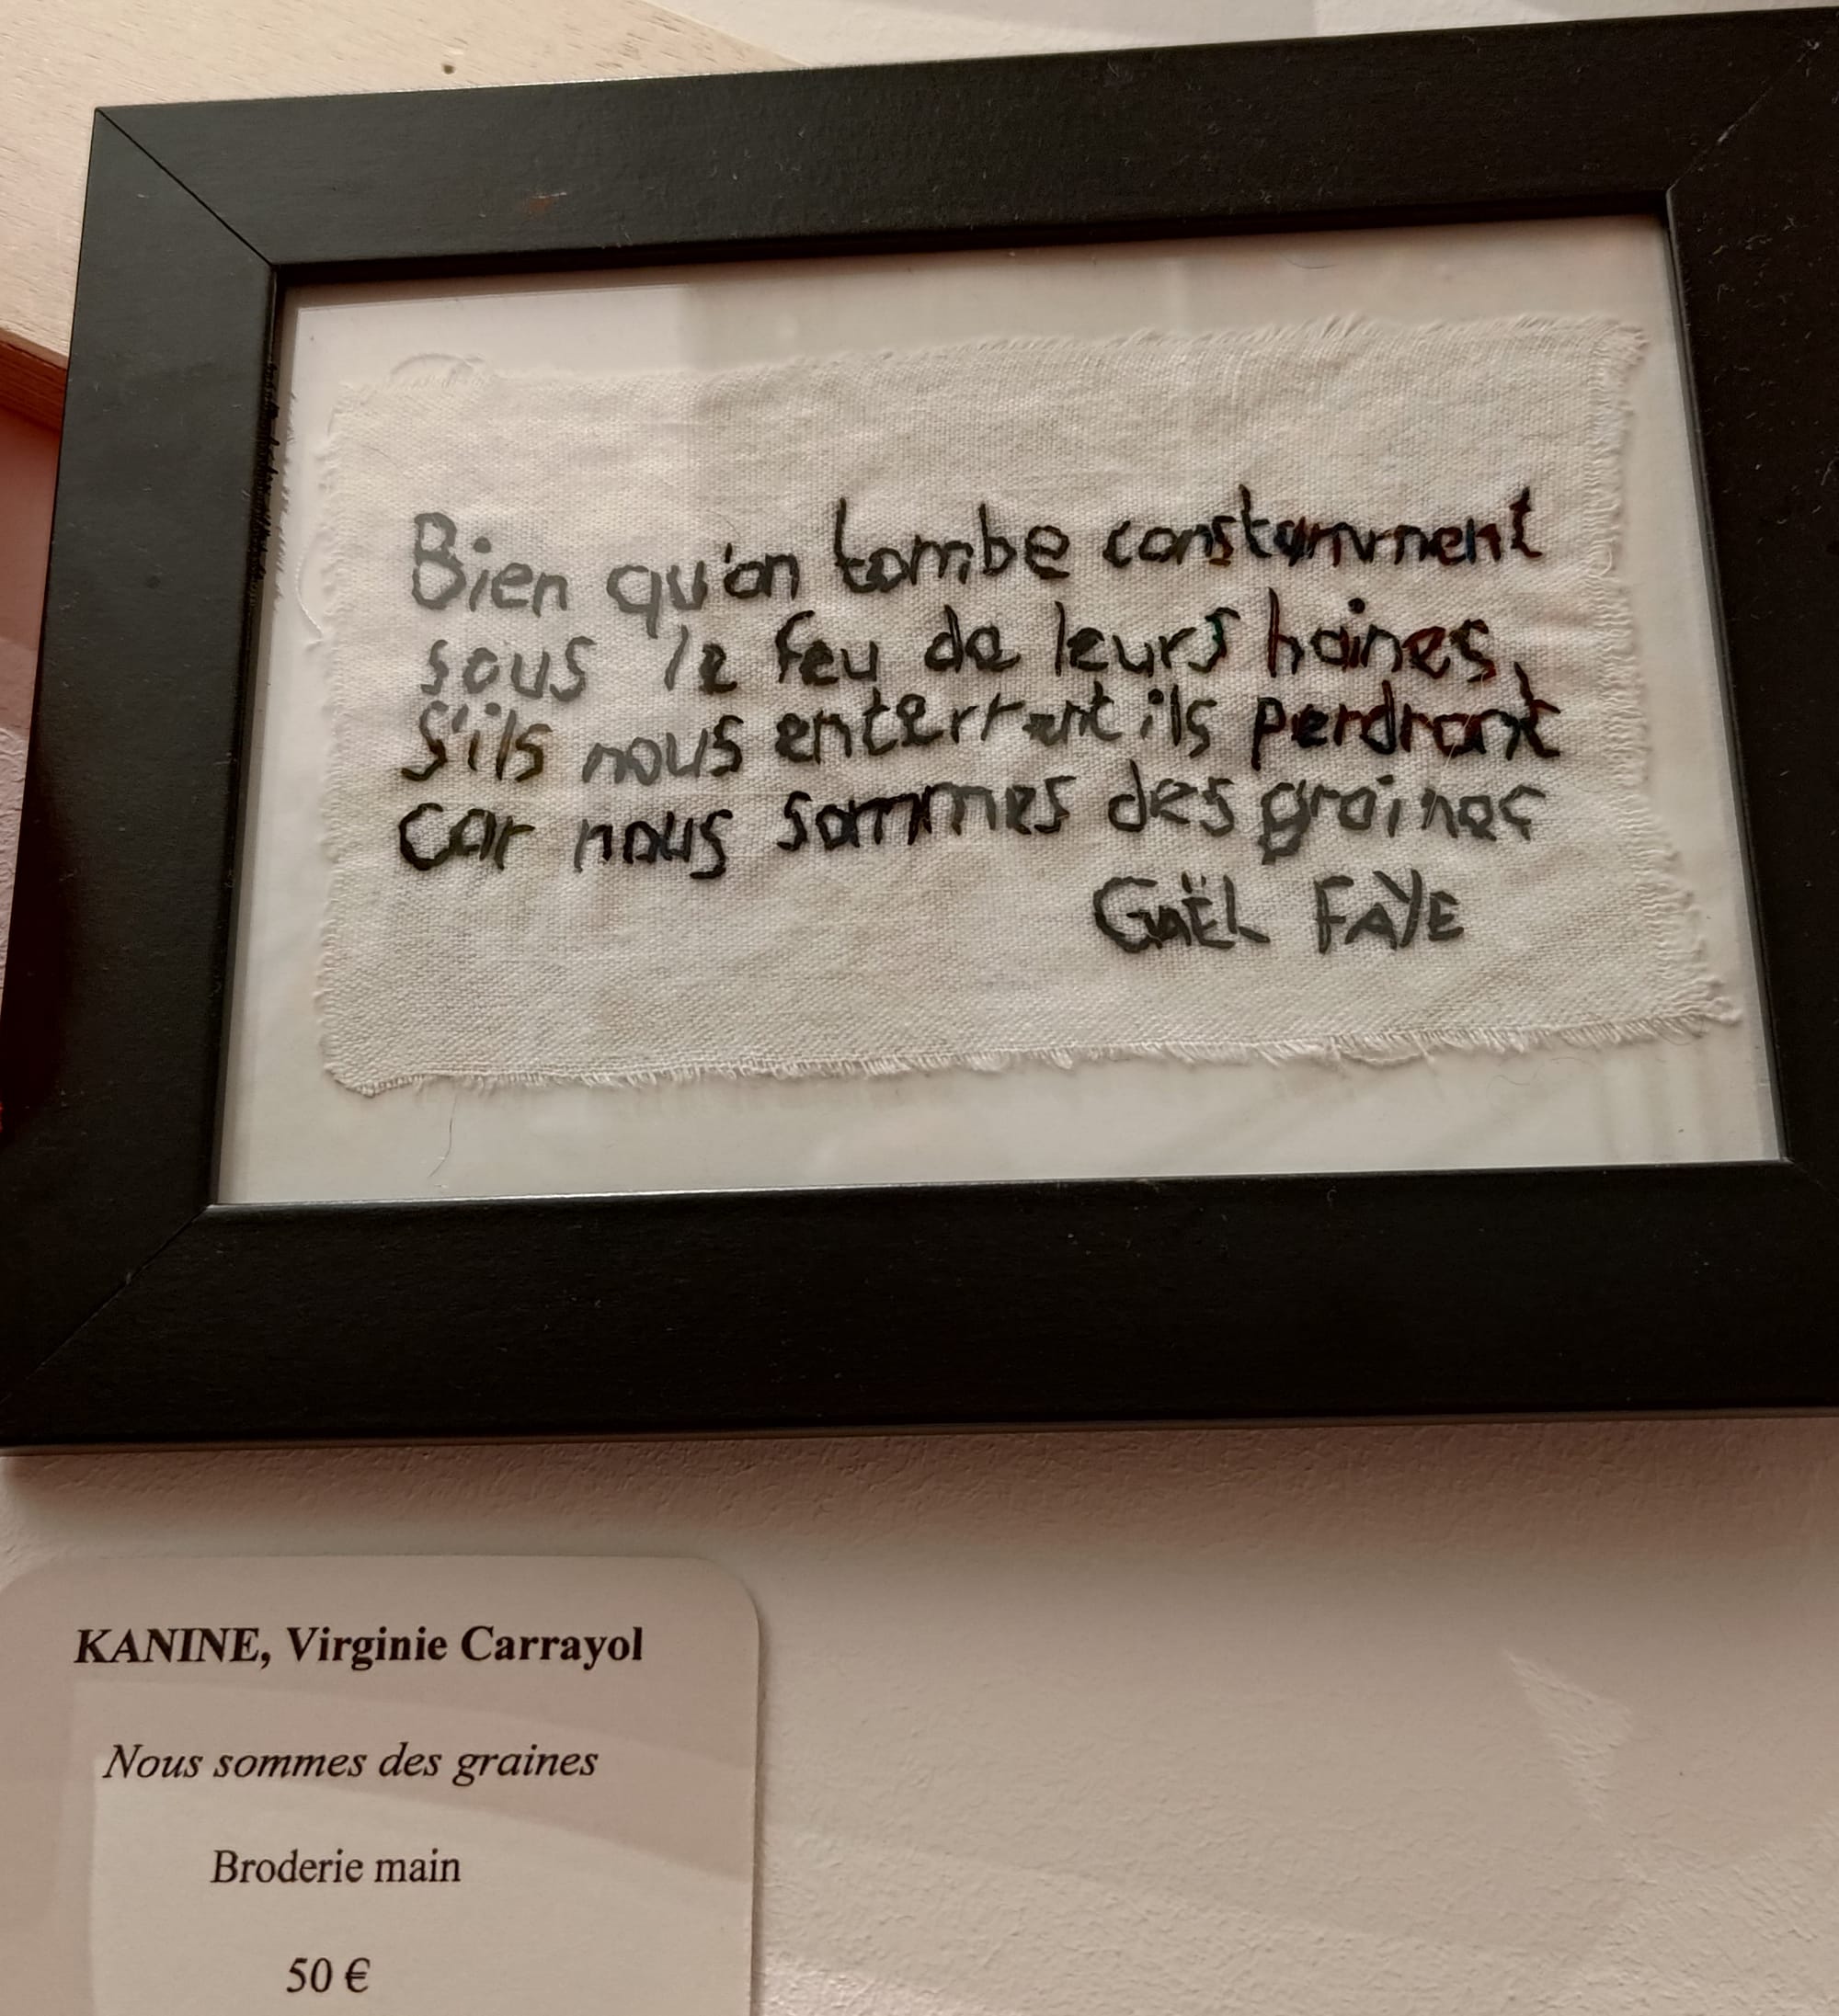 Bien qu'on tombe constamment
sous le feu de leurs haines,
S'ils nous enterrent ils perdront
Car nous sommes des graines
GaËL FAYE
KANINE, Virginie Carrayol
Nous sommes des graines
Broderie main
50 €